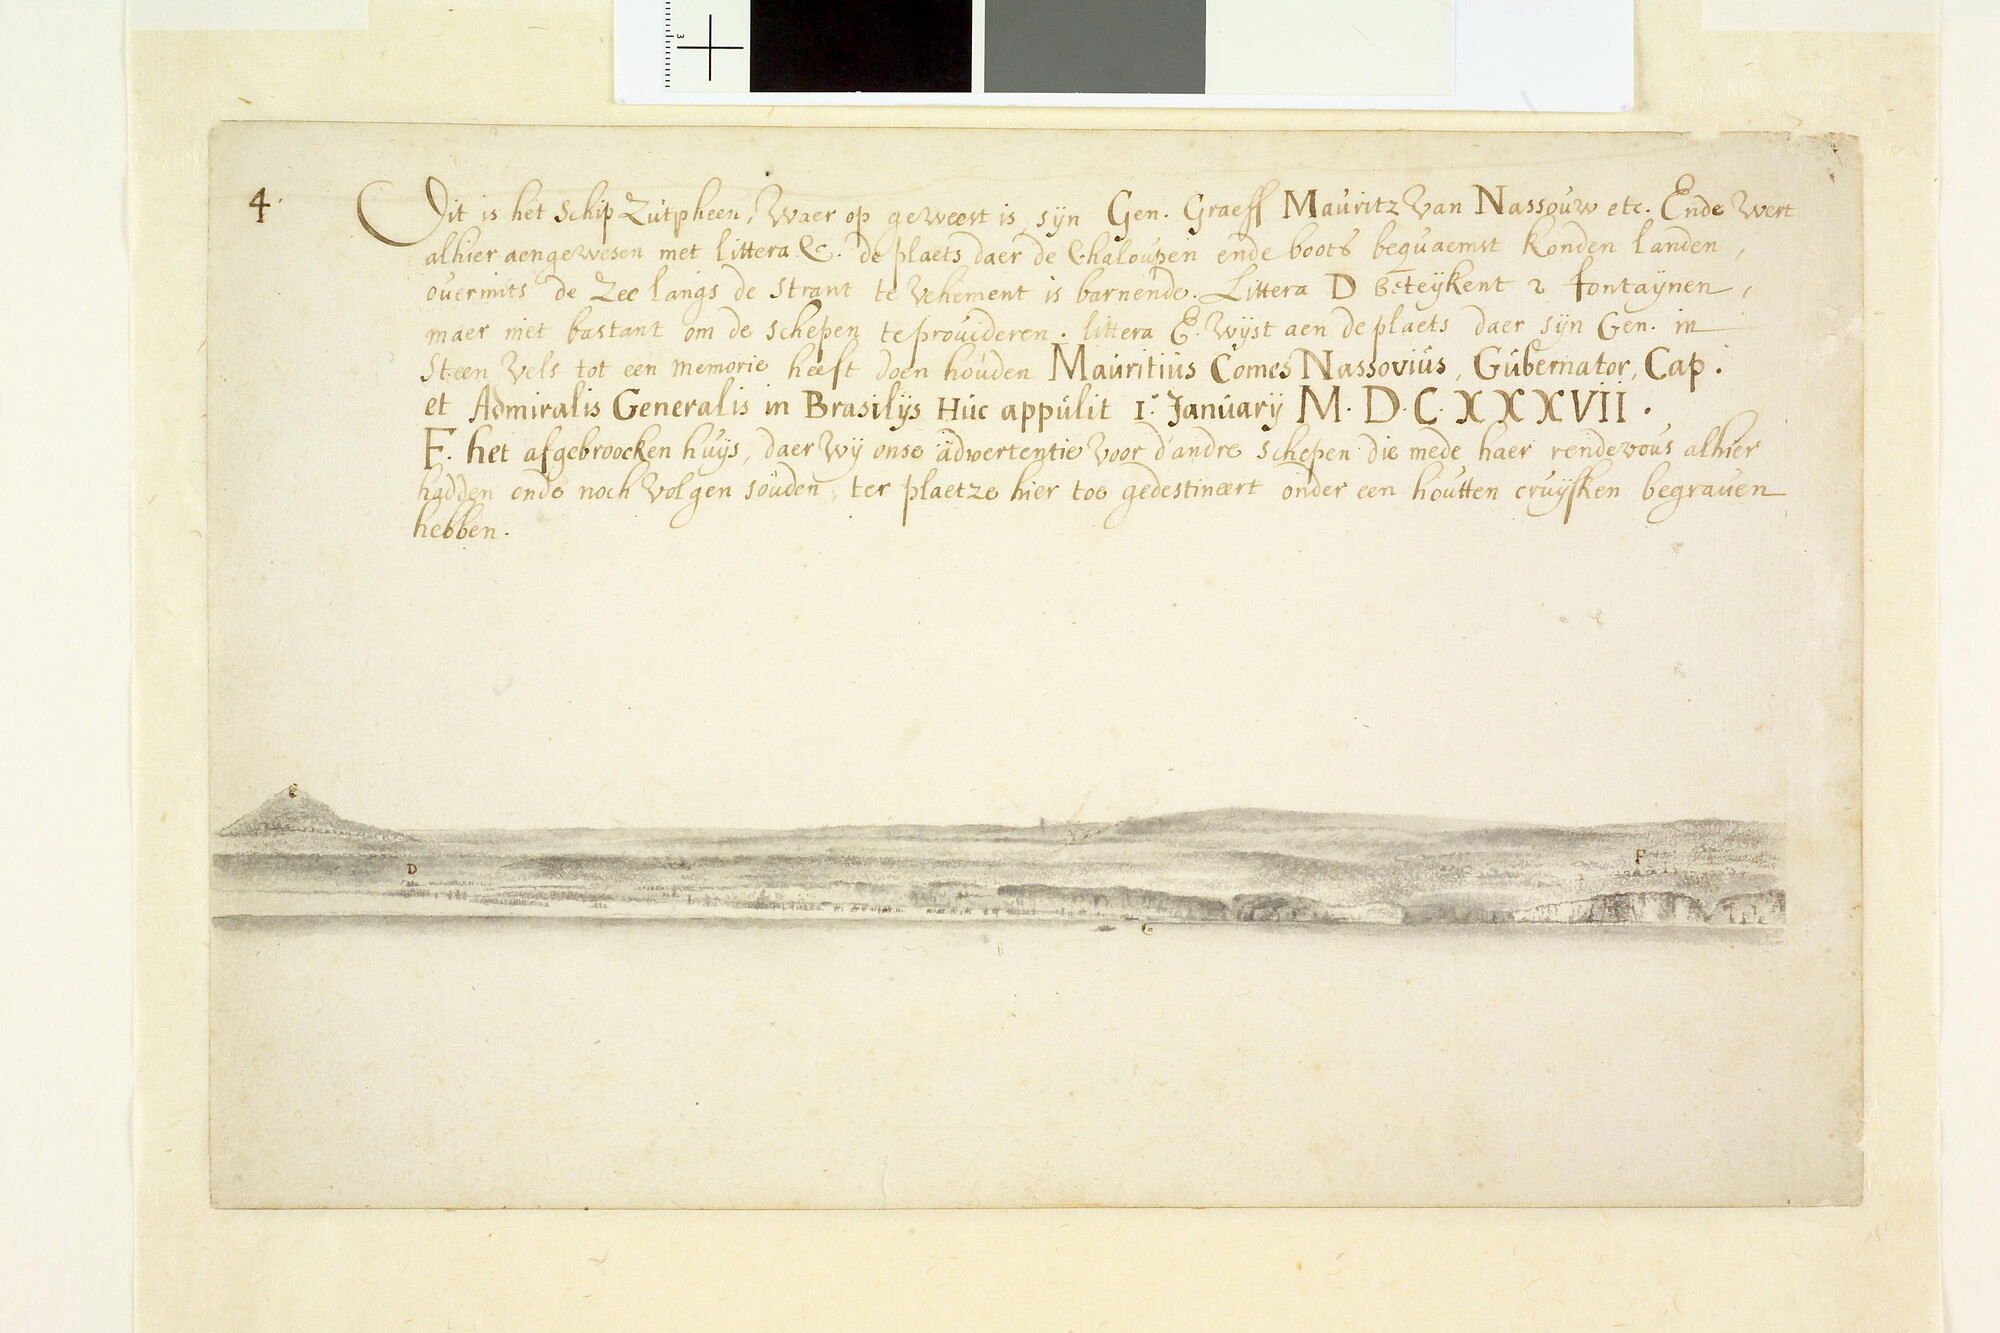 4.
Dit is het schip Zutpheen, Waer op geweest is sÿn Gen. Graeff Mauritz Van Nassouw etc. Ende Wert
alhier aengewesen met littera C. de plaets daer de Chaloupen ende boots bequaemst konden landen,
overmits de Zee langs de strant te Vehement is barnende. Littera D beteÿkent 2 fontaÿnen,
maer niet bastant om de schepen te provideren. littera E. Wÿst aen de plaets daer sÿn Gen. in
Steen Vels tot een memorie heeft doen houden Mauritius Comes Nassovius, Gubernator, Cap.
et Admiralis Generalis in Brasilÿs Huc appulit 1.º Januarÿ M.D.C.XXXVII.
F. het afgebroocken huÿs, daer Wÿ onse advertentie Voor d'andre schepen die mede haer rendevous alhier
hadden ende noch Volgen souden, ter plaetze hier toe gedestineert onder een houtten cruÿsken begraven
hebben.
E
D
F
C
3